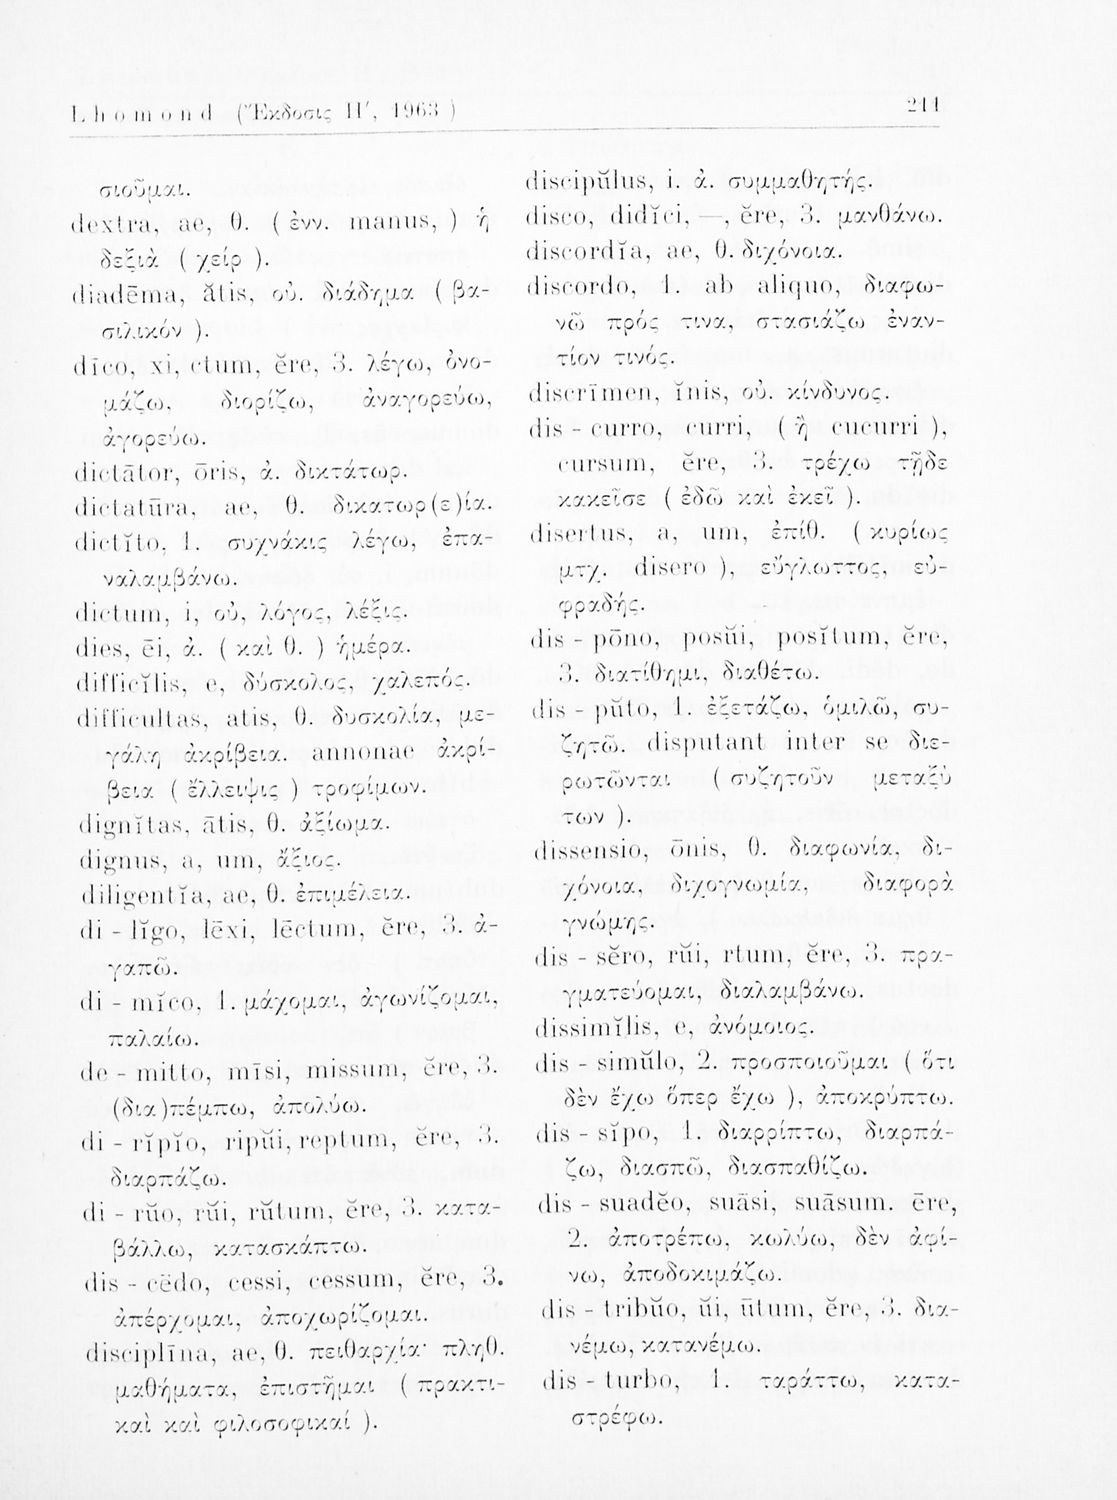 Lhomond (Ἔκδοσις Η′, 1963 )
211
σιοῦμαι.
dextra, ae, θ. ( ἐνν. manus, ) ἡ
δεξιὰ ( χείρ ).
diadēma, ătis, οὐ. διάδημα ( βα-
σιλικόν ).
dīco, xi, ctum, ĕre, 3. λέγω, ὀνο-
μάζω, διορίζω, ἀναγορεύω,
ἀγορεύω.
dictātor, ōris, ἀ. δικτάτωρ.
dictatūra, ae, θ. δικατωρ(ε)ία.
dictĭto, 1. συχνάκις λέγω, ἐπα-
ναλαμβάνω.
dictum, i, οὐ, λόγος, λέξις.
dies, ēi, ἀ. ( καὶ θ. ) ἡμέρα.
difficĭlis, e, δύσκολος, χαλεπός.
difficultas, atis, θ. δυσκολία, με-
γάλη ἀκρίβεια. annonae ἀκρί-
βεια ( ἔλλειψις ) τροφίμων.
dignĭtas, ātis, θ. ἀξίωμα.
dignus, a, um, ἄξιος.
diligentĭa, ae, θ. ἐπιμέλεια.
di - lĭgo, lēxi, lēctum, ĕre, 3. ἀ-
γαπῶ.
di - mĭco, 1. μάχομαι, ἀγωνίζομαι,
παλαίω.
de - mitto, mīsi, missum, ĕre, 3.
(δια)πέμπω, ἀπολύω.
di - rĭpĭo, ripŭi, reptum, ĕre, 3.
διαρπάζω.
di - rŭo, rŭi, rŭtum, ĕre, 3. κατα-
βάλλω, κατασκάπτω.
dis - cēdo, cessi, cessum, ĕre, 3.
ἀπέρχομαι, ἀποχωρίζομαι.
disciplīna, ae, θ. πειθαρχία· πληθ.
μαθήματα, ἐπιστῆμαι ( πρακτι-
καὶ καὶ φιλοσοφικαί ).
discipŭlus, i. ἀ. συμμαθητής.
disco, didĭci, —, ĕre, 3. μανθάνω.
discordĭa, ae, θ. διχόνοια.
discordo, 1. ab aliquo, διαφω-
νῶ πρός τινα, στασιάζω ἐναν-
τίον τινός.
discrīmen, ĭnis, οὐ. κίνδυνος.
dis - curro, curri, ( ἢ cucurri ),
cursum, ĕre, 3. τρέχω τῇδε
κακεῖσε ( ἐδῶ καὶ ἐκεῖ ).
disertus, a, um, ἐπίθ. ( κυρίως
μτχ. disero ), εὔγλωττος, εὐ-
φραδής.
dis - pōno, posŭi, posĭtum, ĕre,
3. διατίθημι, διαθέτω.
dis - pŭto, 1. ἐξετάζω, ὁμιλῶ, συ-
ζητῶ. disputant inter se διε-
ρωτῶνται ( συζητοῦν μεταξύ
των ).
dissensio, ōnis, θ. διαφωνία, δι-
χόνοια, διχογνωμία, διαφορὰ
γνώμης.
dis - sĕro, rŭi, rtum, ĕre, 3. πρα-
γματεύομαι, διαλαμβάνω.
dissimĭlis, e, ἀνόμοιος.
dis - simŭlo, 2. προσποιοῦμαι ( ὅτι
δὲν ἔχω ὅπερ ἔχω ), ἀποκρύπτω.
dis - sĭpo, 1. διαρρίπτω, διαρπά-
ζω, διασπῶ, διασπαθίζω.
dis - suadĕo, suāsi, suāsum. ēre,
2. ἀποτρέπω, κωλύω, δὲν ἀφί-
νω, ἀποδοκιμάζω.
dis - tribŭo, ŭi, ūtum, ĕre, 3. δια-
νέμω, κατανέμω.
dis - turbo, 1. ταράττω, κατα-
στρέφω.